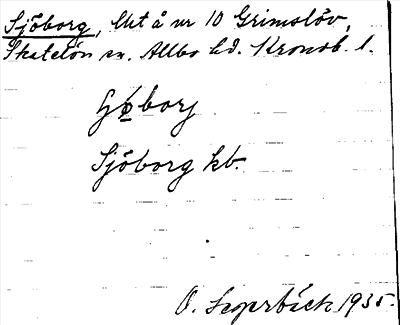 Sjöborg, lht å nr 10 Grimslöv,
Skatelöv sn. Allbo hd. Kronob. l.
Sjöborg kb.
1935.